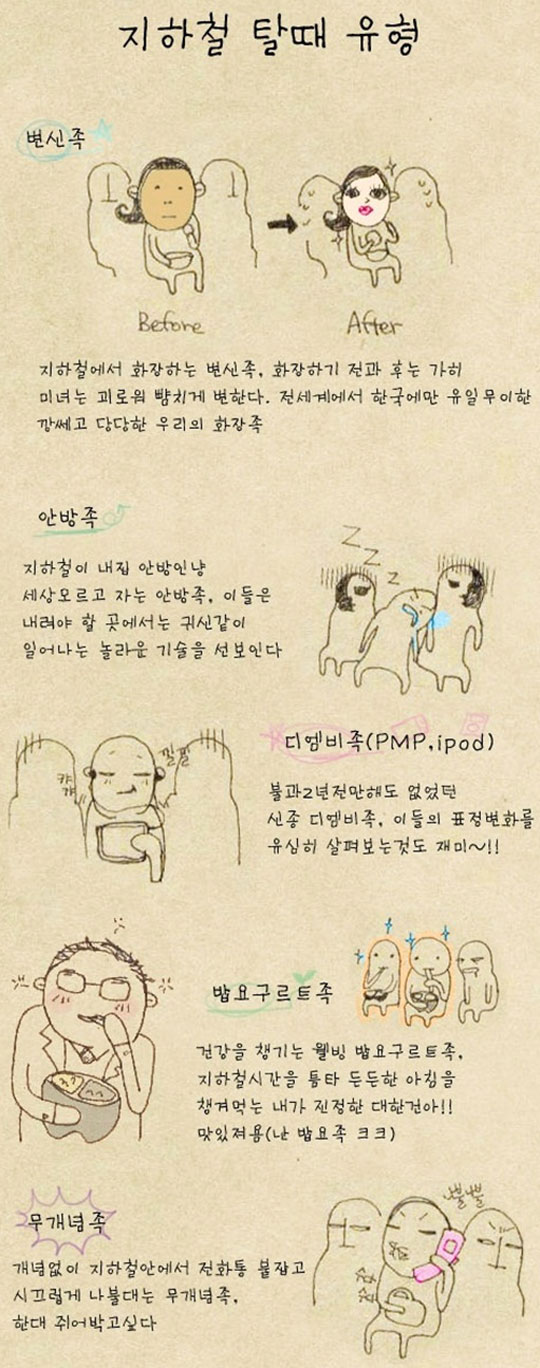 지하철 탈때 유형
변신족
Before
After
지하철에서 화장하는 변신족, 화장하기 전과 후는 가히
미녀는 괴로워 뺨치게 변한다. 전세계에서 한국에만 유일무이한
깡쎄고 당당한 우리의 화장족
안방족
지하철이 내집 안방인냥
세상모르고 자는 안방족, 이들은
내려야 할 곳에서는 귀신같이
일어나는 놀라운 기술을 선보인다
Z Z Z
디엠비족(PMP,ipod)
낄낄
캬캬
불과2년전만해도 없었던
신종 디엠비족, 이들의 표정변화를
유심히 살펴보는것도 재미~!!
밥요구르트족
건강을 챙기는 웰빙 밥요구르트족,
지하철시간을 틈타 든든한 아침을
챙겨먹는 내가 진정한 대한건아!!
맛있져용(난 밥요족 크크)
무개념족
나불나불
개념없이 지하철안에서 전화통 붙잡고
시끄럽게 나불대는 무개념족,
한대 쥐어박고싶다